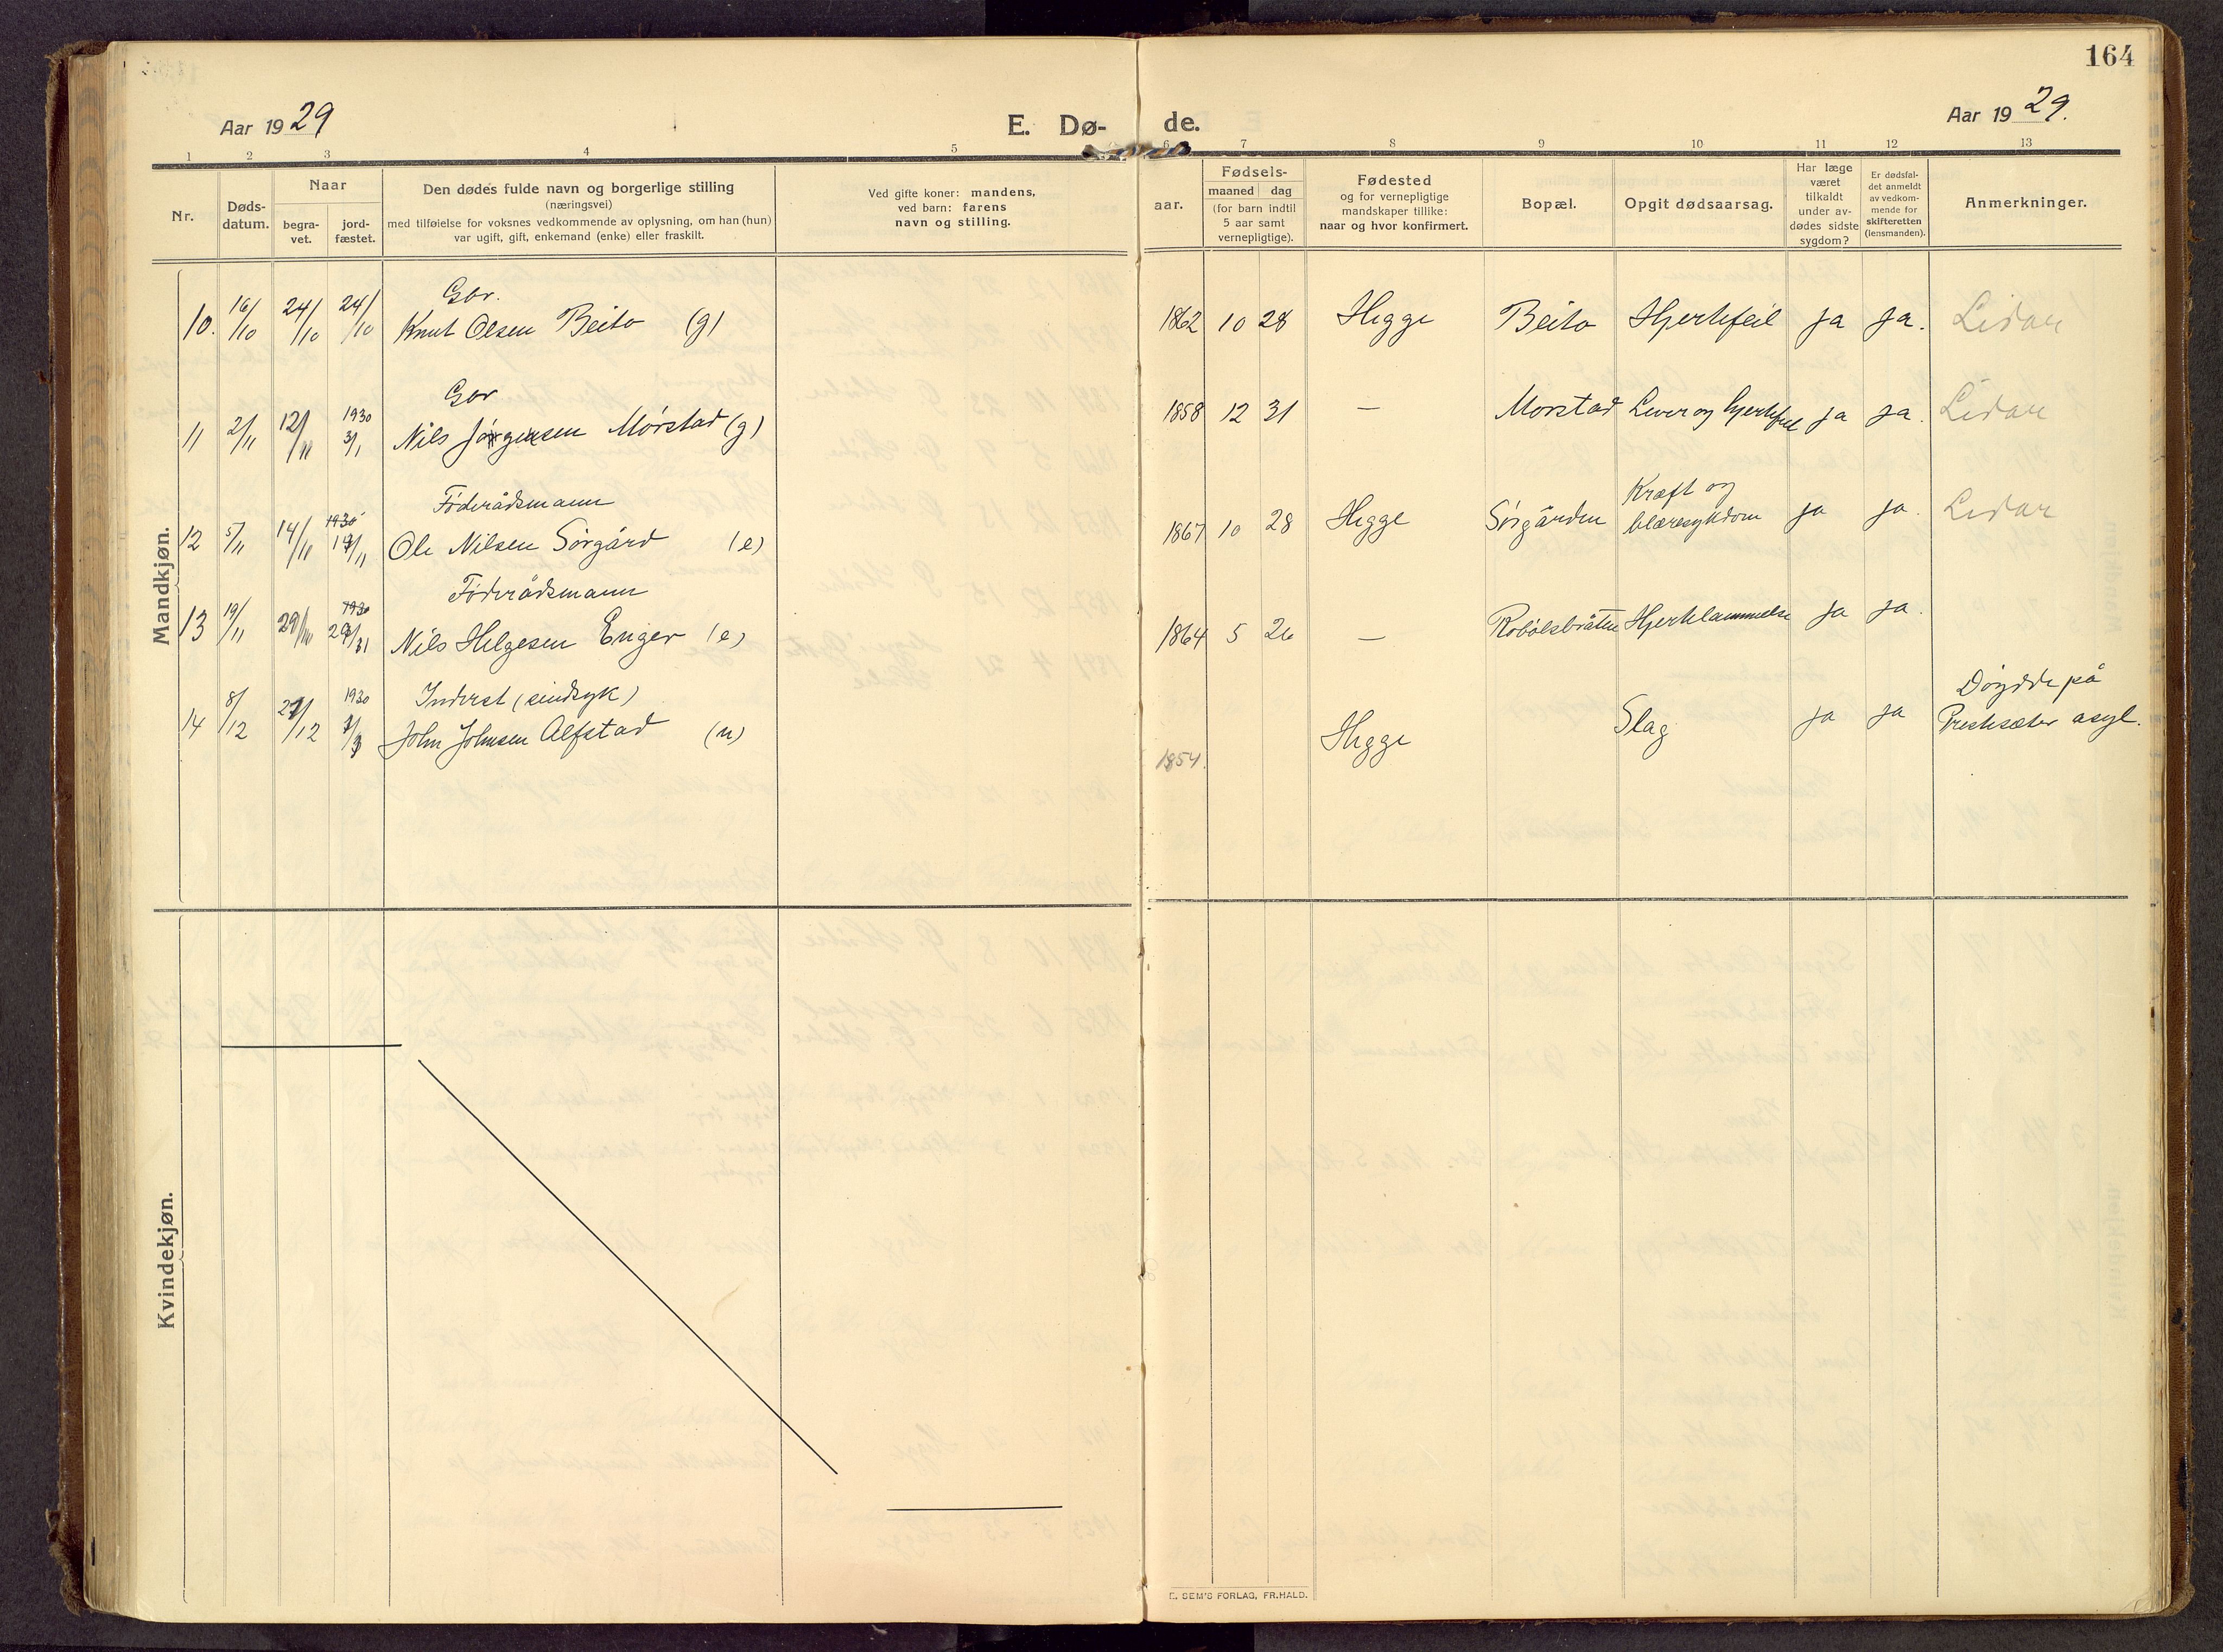 164
Aar 1929
E. Dø-
de.
Aar 1929.
1 2 3 4 5 6 7 8 9 10 11 12 13
Nr.
Døds-
datum.
Naar
begra-
vet.
jord-
fæstet.
Den dødes fulde navn og borgerlige stilling
(næringsvei)
med tilføielse for voksnes vedkommende av oplysning, om han (hun)
var ugift, gift, enkemand (enke) eller fraskilt.
Ved gifte koner: mandens,
ved barn: farens
navn og stilling.
aar.
Fødsels-
maaned dag
(for barn indtil
5 aar samt
vernepligtige).
Fødested
og for vernepligtige
mandskaper tillike:
naar og hvor konfirmert.
Bopæl.
Opgit dødsaarsag.
Har læge
været
tilkaldt
under av-
dødes sidste
sygdom?
Er dødsfal-
det anmeldt
av vedkom-
mende for
skifteretten
(lensmanden).
Anmerkninger.
Mandkjøn.
Gbr.
10. 16/10 24/10 24/10 Knut Olsen Beito (g) 1862 10 28 Hegge Beito Hjertefeil ja ja. Lidar
Gbr
1930
11 2/11 12/11 3/1 Nils Jørgensen Mørstad (g) 1858 12 31 — Morstad Lever og hjertefeil ja ja. Lidar
Føderådsmann
1930
12 5/11 14/11 Ole Nilsen Sørgård (e) 1867 10 28 Hegge Sørgården Kræft og
blæresykdom ja ja. Lidar
Føderådsmann
1930
13 19/11 Nils Helgesen Enger (e) 1864 5 26 — Robølsbråten Hjertelammelse ja ja.
Inderst (sindsyk)
1930
14 8/12 John Johnsen Alfstad (u) 1854. Hegge Slag ja ja Døydde på
Presteseter asyl.
Kvindekjøn.
E. SEM'S FORLAG, FR.HALD.